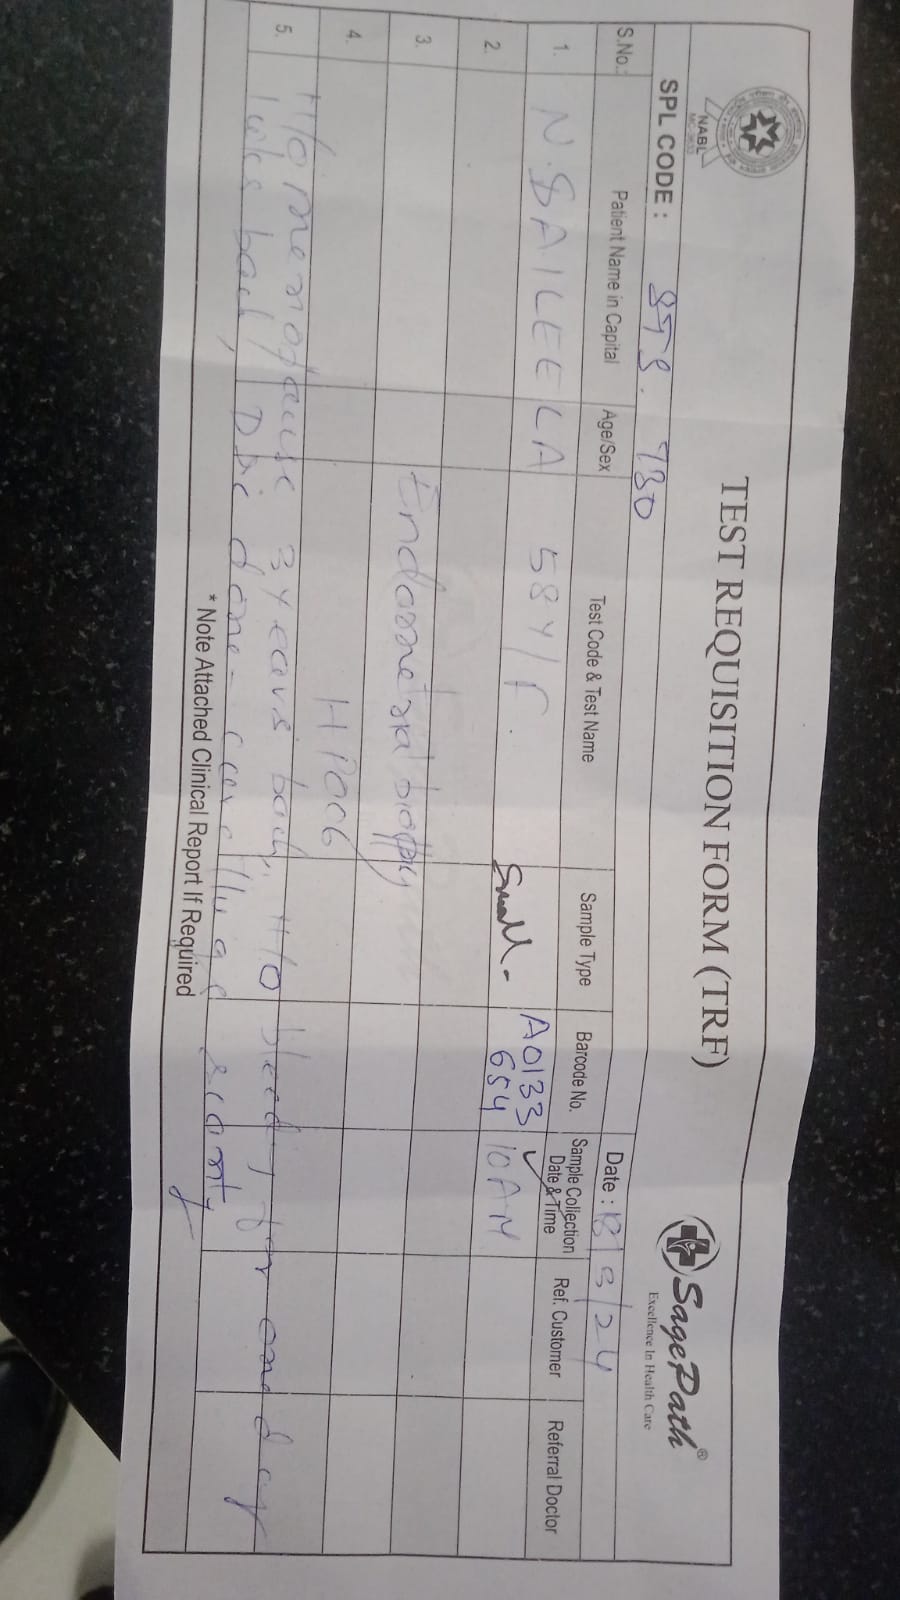 TEST REQUISITION FORM (TRF)
NABL
SagePath®
Excellence In Health Care
SPL CODE :
Date :
S.No.: Patient Name in Capital Age/Sex Test Code & Test Name Sample Type Barcode No. Sample Collection Date & Time Ref. Customer Referral Doctor
1. N. SAILEELA 58Y/F. Small. A0133 654 10AM
2.
3. Endometrial biopsy
4. HP006
5. H/o menopause 3 years back, H/o bleed for one day
1 wk back, D&C done - scanty
* Note Attached Clinical Report If Required